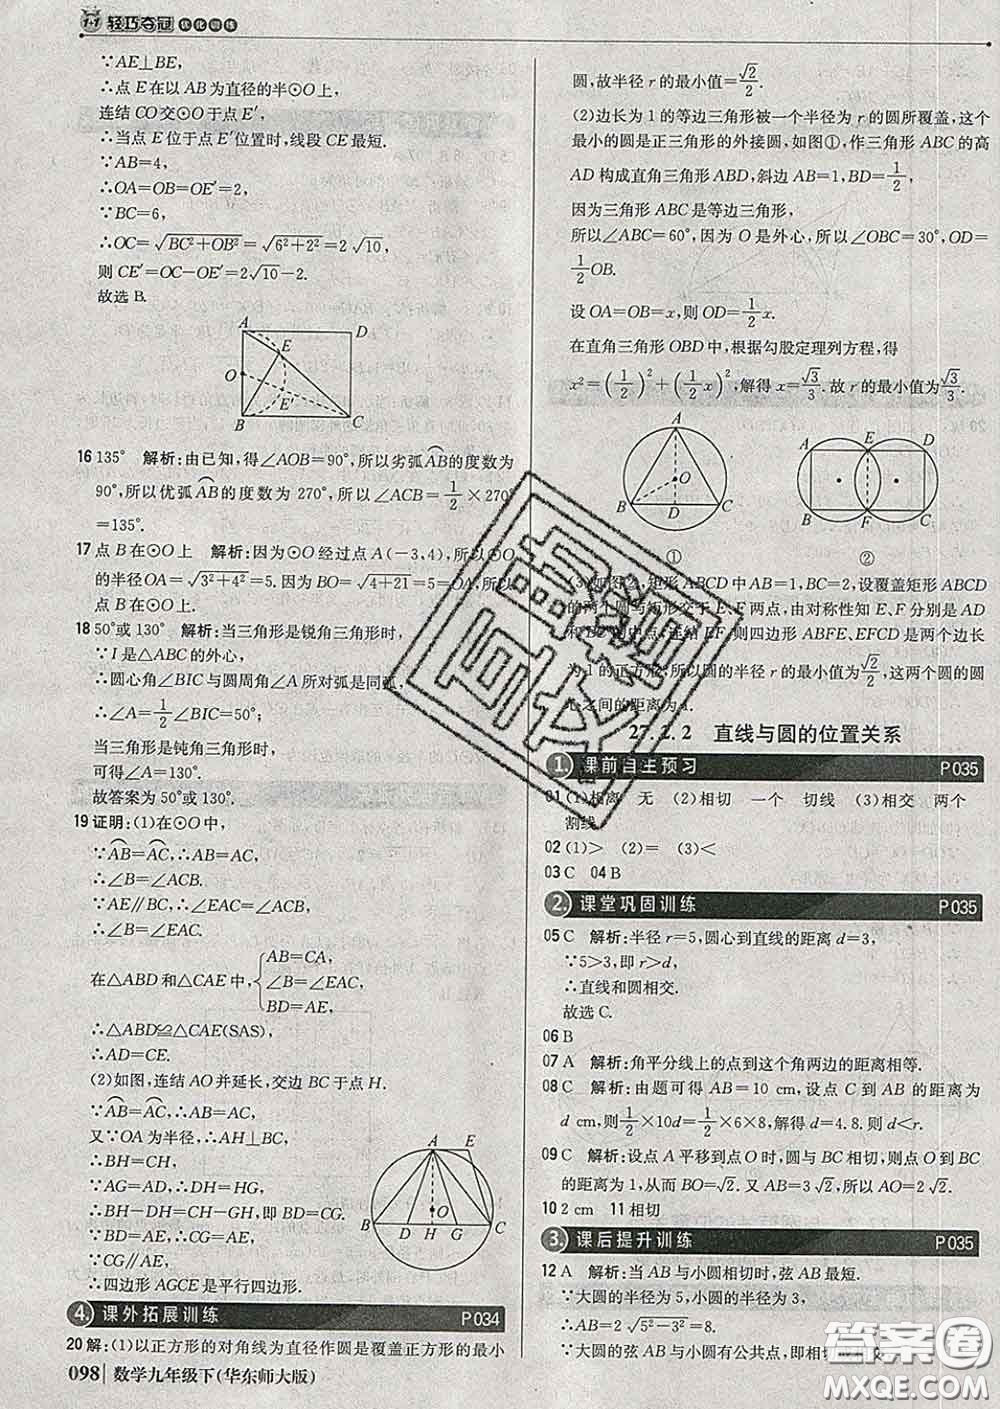 1+1 轻巧夺冠 优化训练
∵AE⊥BE,
∴点 E在以 AB为直径的半⊙O上,
连结 CO交⊙O于点 E′,
∴当点 E位于点 E′位置时,线段 CE最短.
∵AB=4,
∴OA=OB=OE′=2,
∵BC=6,
∴OC=√(BC²+OB²)=√(6²+2²)=2√10,
则 CE′=OC-OE′=2√10-2.
故选 B.
A D E O E′ B C
16 135° 解析:由已知,得∠AOB=90°,所以劣弧AB的度数为
90°,所以优弧AB的度数为 270°,所以∠ACB=1/2×270°
=135°.
17 点 B在⊙O上 解析:因为⊙O经过点 A(-3,4),所以⊙O
的半径OA=√(3²+4²)=5.因为 BO=√(4+21)=5=OA,所以
点 B在⊙O上.
18 50°或 130° 解析:当三角形是锐角三角形时,
∵I是△ABC的外心,
∴圆心角∠BIC与圆周角∠A所对弧是同弧,
∴∠A=1/2∠BIC=50°;
当三角形是钝角三角形时,
可得∠A=130°.
故答案为 50°或 130°.
19 证明:(1)在⊙O中,
∵AB=AC,∴AB=AC,
∴∠B=∠ACB.
∵AE∥BC,∴∠EAC=∠ACB,
∴∠B=∠EAC.
在△ABD和△CAE中,{AB=CA, ∠B=∠EAC, BD=AE,
∴△ABD≌△CAE(SAS),
∴AD=CE.
(2)如图,连结 AO并延长,交边 BC于点 H.
∵AB=AC,∴AB=AC,
又∵OA为半径,∴AH⊥BC.
∴BH=CH,
∵AG=AD,∴DH=HG,
∴BH-DH=CH-GH,即 BD=CG,
∵BD=AE,∴CG=AE,
∵CG∥AE,
∴四边形 AGCE是平行四边形.
A E O B D H G C
4. 课外拓展训练 P034
20 解:(1)以正方形的对角线为直径作圆是覆盖正方形的最小
098 数学九年级下(华东师大版)
圆,故半径 r的最小值=√2/2.
(2)边长为 1的等边三角形被一个半径为 r的圆所覆盖,这个
最小的圆是正三角形的外接圆,如图①,作三角形 ABC的高
AD构成直角三角形 ABD,斜边 AB=1,BD=1/2,
因为三角形 ABC是等边三角形,
所以∠ABC=60°,因为 O是外心,所以∠OBC=30°,OD=
1/2OB.
设 OA=OB=x,则 OD=1/2x.
在直角三角形 OBD中,根据勾股定理列方程,得
x²=(1/2)²+(1/2x)²,解得 x=√3/3.故 r的最小值为√3/3.
A O B D C
A E D B F C
① ②
(3)如图2,矩形 ABCD中 AB=1,BC=2,设覆盖矩形 ABCD
的两个圆与矩形交于 E、F两点,由对称性知 E、F分别是 AD
和 BC的中点,连结 EF,则四边形 ABFE,EFCD是两个边长
为 1的正方形,所以圆的半径 r的最小值为√2/2,这两个圆的圆
心之间的距离为 1.
27.2.2 直线与圆的位置关系
1. 课前自主预习 P035
01 (1)相离 无 (2)相切 一个 切线 (3)相交 两个
割线
02 (1)> (2)= (3)<
03 C 04 B
2. 课堂巩固训练 P035
05 C 解析:半径 r=5,圆心到直线的距离 d=3,
∵5>3,即 r>d,
∴直线和圆相交.
故选 C.
06 B
07 A 解析:角平分线上的点到这个角两边的距离相等.
08 C 解析:由题可得 AB=10 cm,设点 C到 AB的距离为
d cm,则1/2×10d=1/2×6×8,解得 d=4.8.则 d<r.
09 C 解析:设点 A平移到点 O时,与圆 BC相切,则点 O到 BC
的距离为 1,从而 BO=√2.又 AB=3√2,所以 AO=2√2.
10 2 cm 11 相切
3. 课后提升训练 P035
12 A 解析:当 AB与小圆相切时,弦 AB最短.
∵大圆的半径为 5,小圆的半径为 3,
∴AB=8.
∵大圆的弦 AB与小圆有公共点,即相切或相交,
答案圈
MXQE.COM